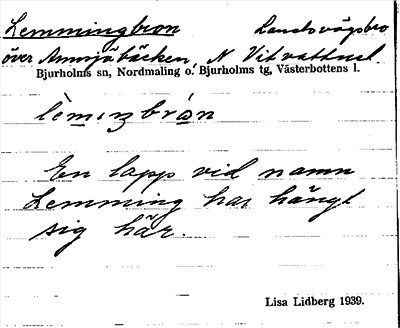 Lemmingbron Landsvägsbro
över Annsjöbäcken, N Vitvattnet
Bjurholms sn, Nordmaling o. Bjurholms tg, Västerbottens l.
lèmiŋbrón
En lapp vid namn
Lemming har hängt
sig här.
Lisa Lidberg 1939.